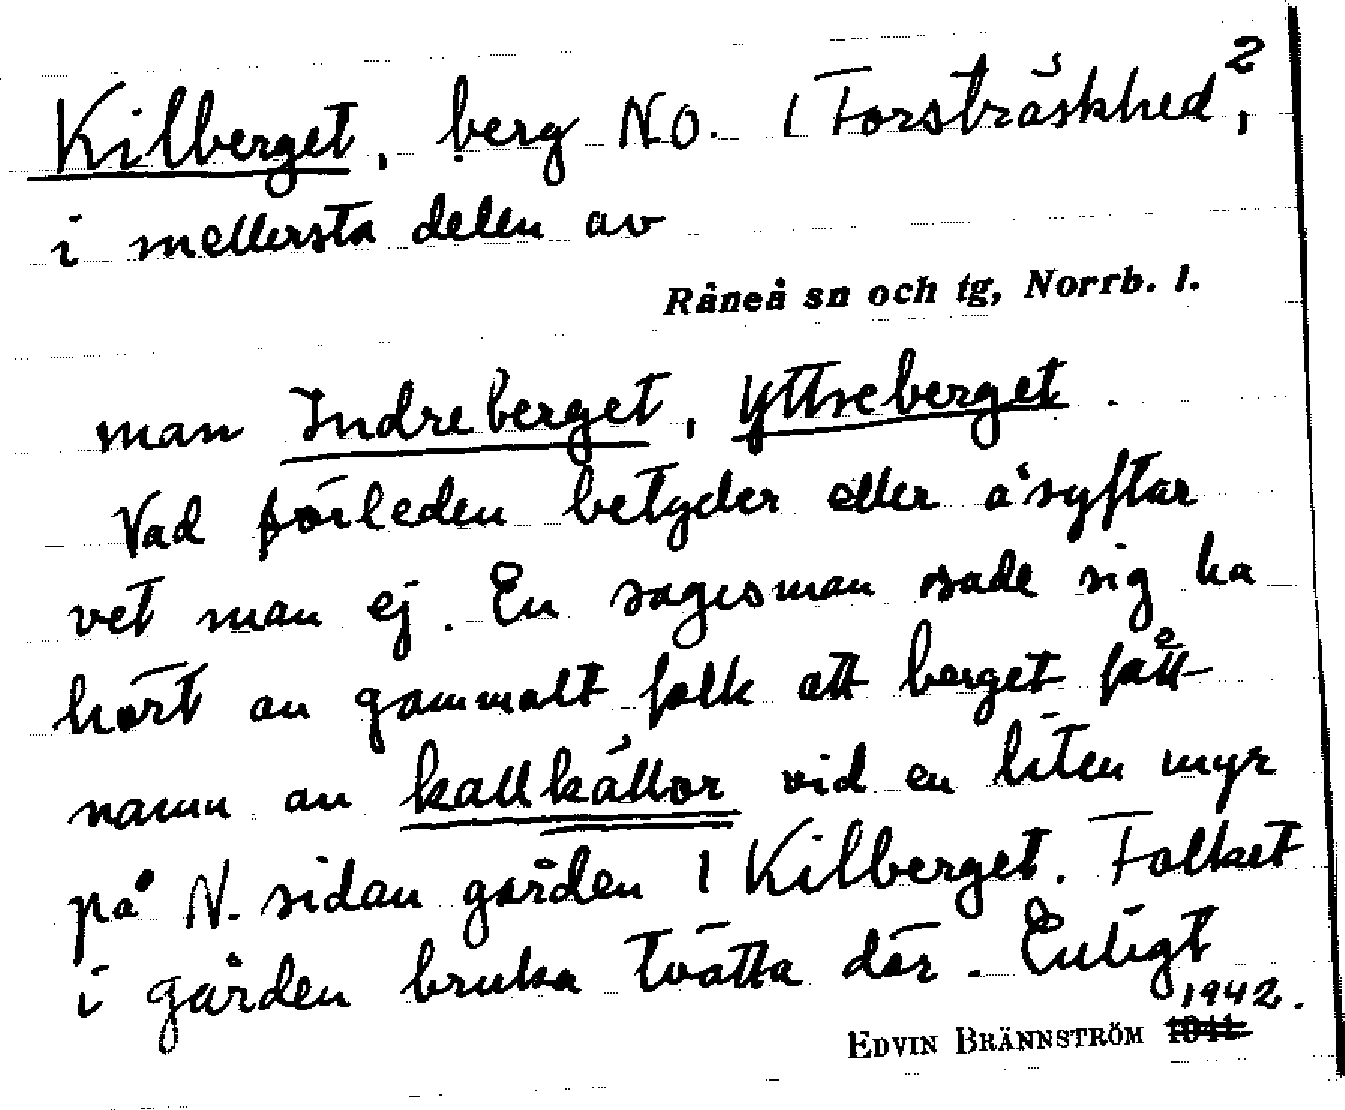 Kilberget, berg NO. 1 Forsträskhed², 
i mellersta delen av
Råneå sn och tg, Norrb. l.
man Indreberget, Yttreberget.
Vad förleden betyder eller åsyftar
vet man ej. En sagesman sade sig ha
hört av gammalt folk att berget fått
namn av kallkällor vid en liten myr
på N. sidan gården 1 Kilberget. Folket
i gården bruka tvätta där. Enligt
1942.
EDVIN BRÄNNSTRÖM 1941